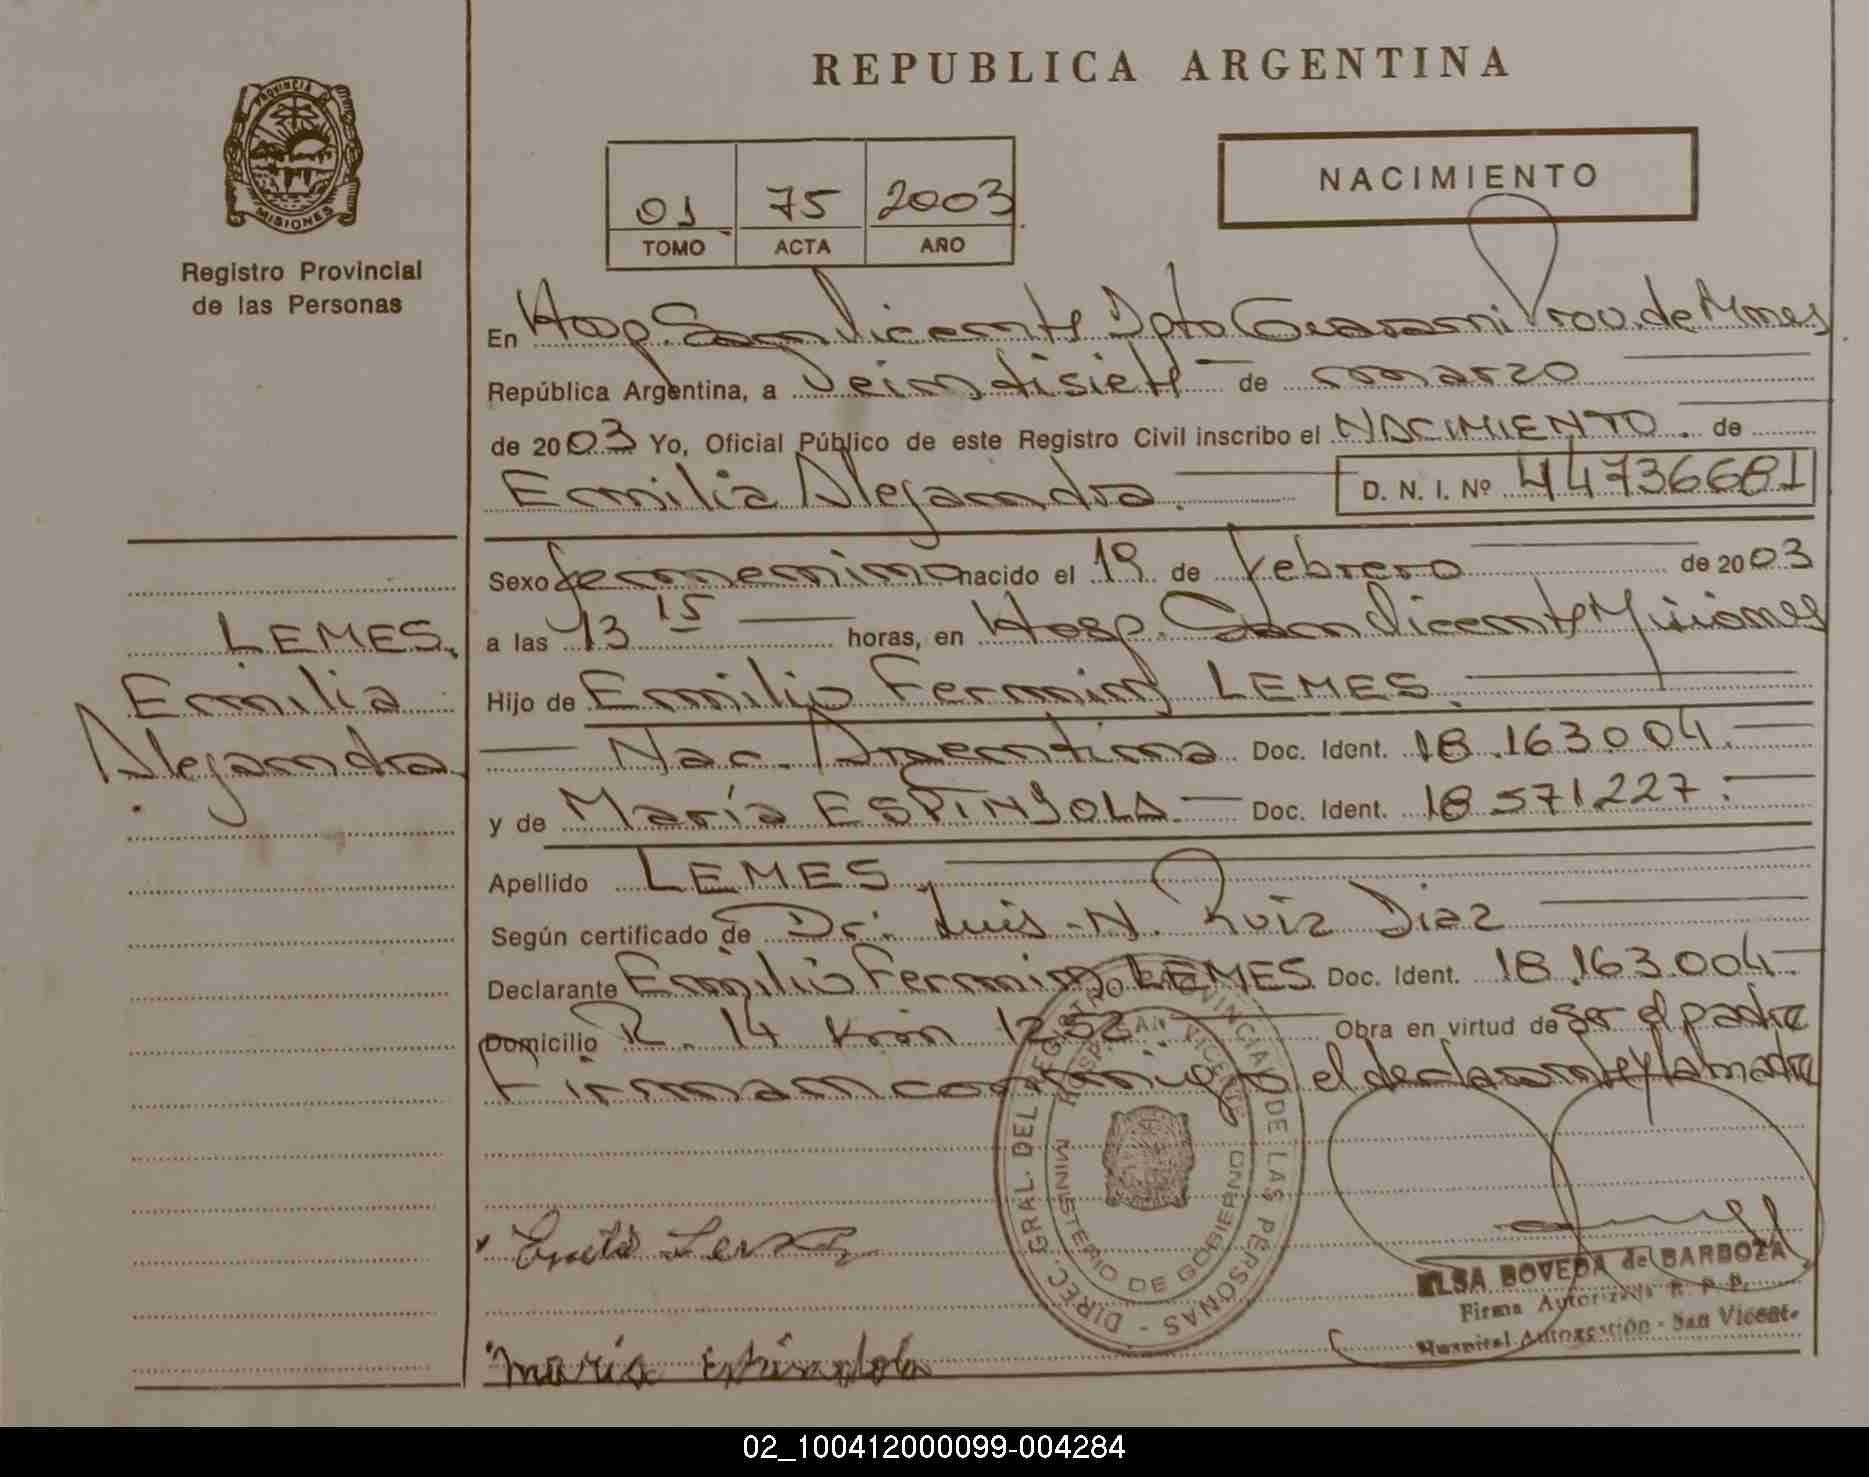 REPUBLICA ARGENTINA
PROVINCIA DE
MISIONES
Registro Provincial
de las Personas
NACIMIENTO
01 75 2003
TOMO ACTA AÑO
En Hosp. San Vicente Dpto Guarani Prov. de Mnes
República Argentina, a Veintisiete de marzo
de 2003 Yo, Oficial Público de este Registro Civil inscribo el NACIMIENTO. de
Emilia Alejandra. D. N. I. Nº 44736681
LEMES,
Emilia
Alejandra
Sexo femenino nacido el 19 de febrero de 2003
a las 13 15 horas, en Hosp. San Vicente Misiones
Hijo de Emilio Fermin LEMES.
Nac. Argentina Doc. Ident. 18.163.004.
y de María ESPINDOLA. Doc. Ident. 18 571227.
Apellido LEMES,
Según certificado de Dr. Luis N. Ruiz Diaz
Declarante Emilio Fermin LEMES Doc. Ident. 18.163.004.
Domicilio R. 14 Km 1252 Obra en virtud de Ser el padre
Firman conmigo el declarante y la madre
DIREC. GRAL. DEL REGISTRO PROVINCIAL DE LAS PERSONAS -
HOSP. SAN VICENTE
MINISTERIO DE GOBIERNO
ELSA BOVEDA de BARBOZA
Firma Autorizada R. P. P.
Hospital Autogestión - San Vicente
maria Espindola
02_100412000099-004284